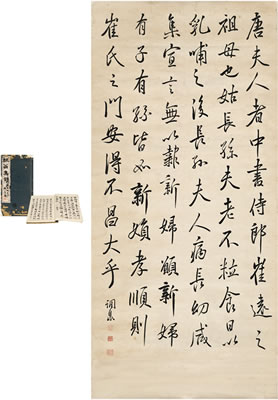 唐夫人者中書侍郎崔遠之
祖母也姑長孫夫老不粒食日以
乳哺之後長孫夫人病長幼咸
集宣言無以報新婦願新婦
有子有孫皆如新婦孝順則
崔氏之門安得不昌大乎